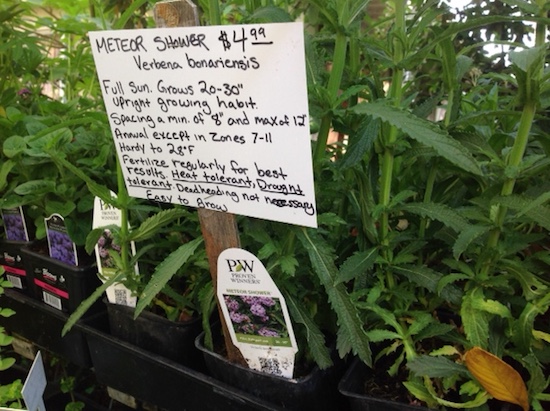 METEOR SHOWER $4.99
Verbena bonariensis
Full Sun. Grows 20-30"
Upright growing habit.
Spacing a min. of 8" and max of 12"
Annual except in Zones 7-11
Hardy to 28°F
Fertilize regularly for best
results. Heat tolerant, Drought
tolerant Deadheading not necessary
Easy to Grow
PW
PROVEN
WINNERS
METEOR SHOWER